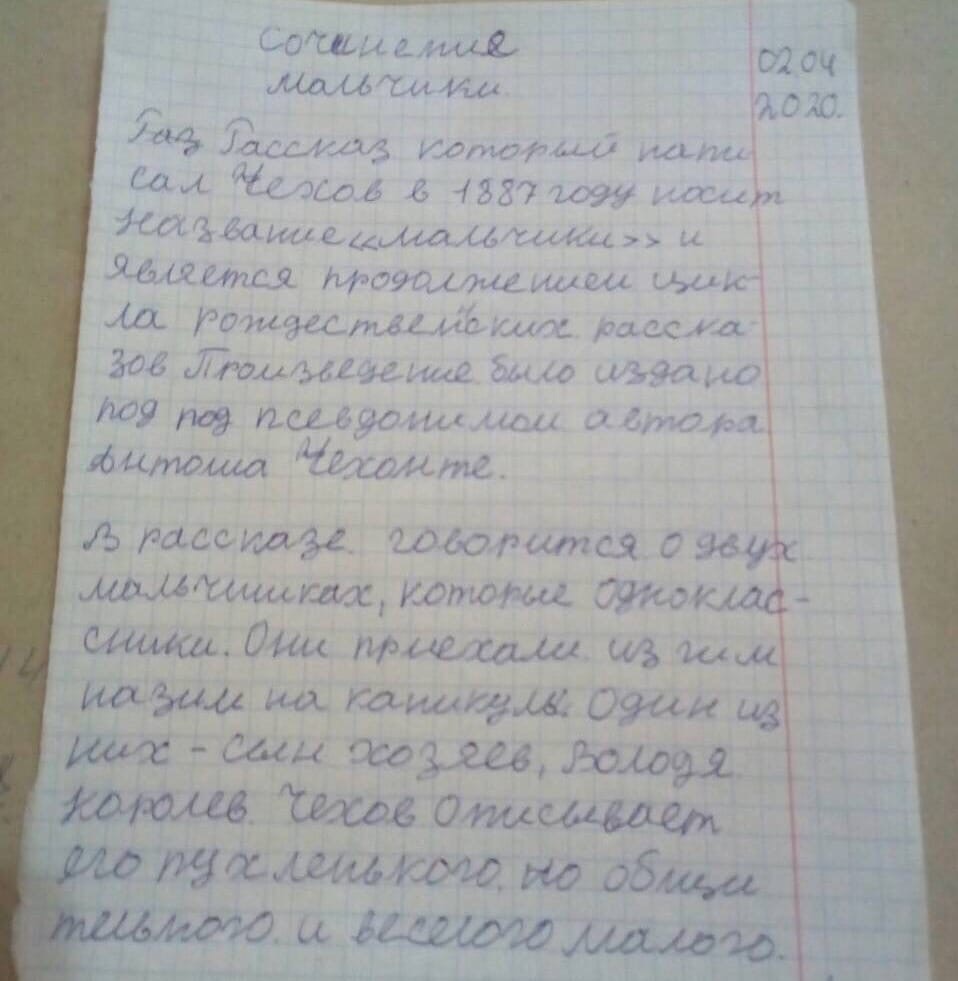 Сочинение
Мальчики.
02 04
2020.
Газ Рассказ который напи
сал Чехов в 1887 году носит
Название «мальчики» и
является продолжением цик-
ла рождественских расска-
зов Произведение было издано
под под псевдонимом автора
Антоша Чехонте.
В рассказе говорится о двух
мальчишках, которые одноклас-
сники. Они приехали из гим
назии на каникулы. Один из
них - сын хозяев, Володя
Королев. Чехов описывает
его пухленького но общи
тельного и веселого малого.